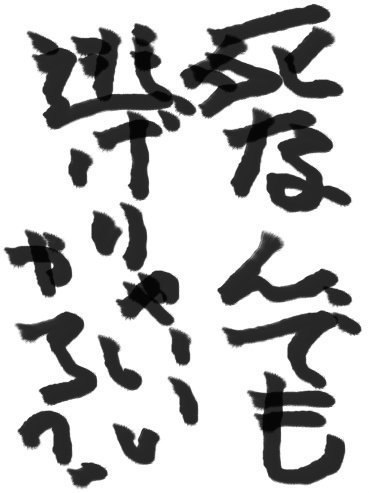 死なんでも
逃げりゃいい
やろ?